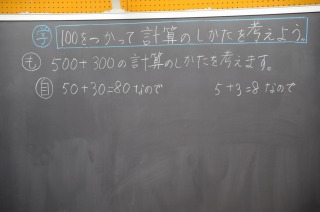 学 100をつかって計算のしかたを考えよう。
も 500+300の計算のしかたを考えます。
自 50+30=80なので 5+3=8なので